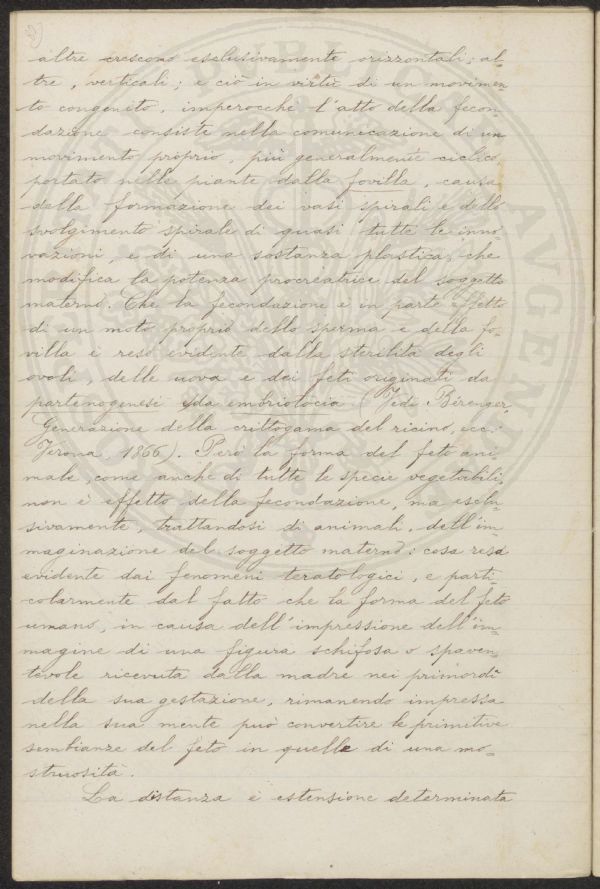 altre crescono esclusivamente orizzontali; al=
tre, verticali; e ciò in virtù di un movimen=
to congenito, imperocchè l'atto della fecon=
dazione consiste nella comunicazione di un
movimento proprio, più generalmente ciclico,
portato nelle piante dalla fovilla, causa
della formazione dei vasi spirali e dello
svolgimento spirale di quasi tutte le inno=
vazioni, e di una sostanza plastica, che
modifica la potenza procreatrice del soggetto
materno. Che la fecondazione è in parte effetto
di un moto proprio dello sperma e della fo=
villa è reso evidente dalla sterilità degli
ovoli, delle uova e dei feti originati da
partenogenesi e da embriotocia (Vedi Bérenger
Generazione della crittogama del ricino, ecc.:
Verona, 1866). Però la forma del feto ani=
male, come anche di tutte le specie vegetabili,
non è effetto della fecondazione, ma esclu=
sivamente, trattandosi di animali, dell'im=
maginazione del soggetto materno: cosa resa
evidente dai fenomeni teratologici, e parti=
colarmente dal fatto che la forma del feto
umano, in causa dell'impressione dell'im=
magine di una figura schifosa o spaven=
tevole ricevuta dalla madre nei primordî
della sua gestazione, rimanendo impressa
nella sua mente può convertire le primitive
sembianze del feto in quelle di una mo=
struosità.
La distanza è estensione determinata